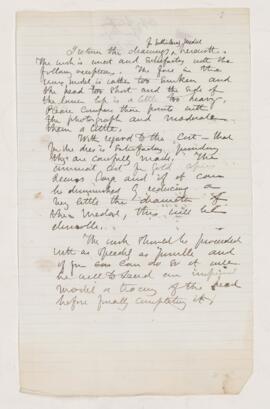 for Salisbury Medal
I return the drawings herewith.
The work is most and satisfactory with the
following exceptions. The face in the
wax model is rather too sunken and
the head too short and the
of the lower lip is a little too heavy.
Please compare these points with
the photograph and moderate
them a little.
With regard to the Cost – that
for the dies is satisfactory, providing
they are carefully made. The
cost in Gold
seems large and if of course
be diminished by reducing a
very little the diameter of
the Medal, this will be
The work should be proceeded
with as speedily as possible and
if you can do so it will
be well to send an
model a tracing of the head
before finally completing it